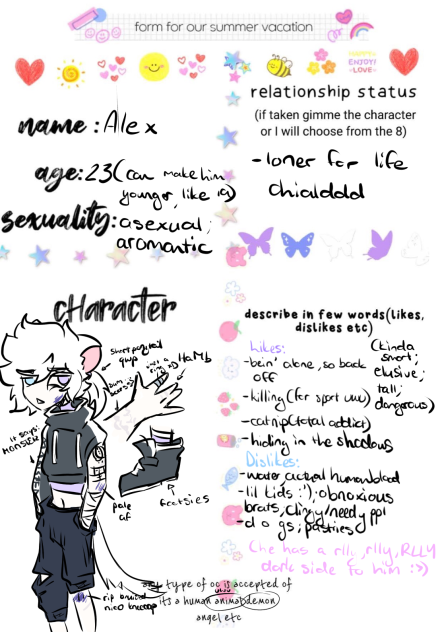 form for our summer vacation
ENJOY!
~LOVE~
relationship status
(if taken gimme the character
or I will choose from the 8)
-loner for life
name: Alex
age: 23 (can make him
younger, like 19)
sexuality: asexual;
aromantic
cHaracter
short ponytail
HaNd
it says:
MONSTER
pale
af
feetsies
describe in few words(likes,
dislikes etc)
Likes:
-bein' alone, so back
off
-killing (for sport uwu)
-catnip (total addict)
-hiding in the shadows
(kinda
smart;
elusive;
tall;
dangerous)
Dislikes:
-water, actual human blood
-lil kids :'); obnoxious
brats, clingy/needy ppl
-d o gs; pasties
(he has a rlly, rlly, RLLY
dark side to him :>)
any type of oc is accepted of
its a human animal demon
angel etc